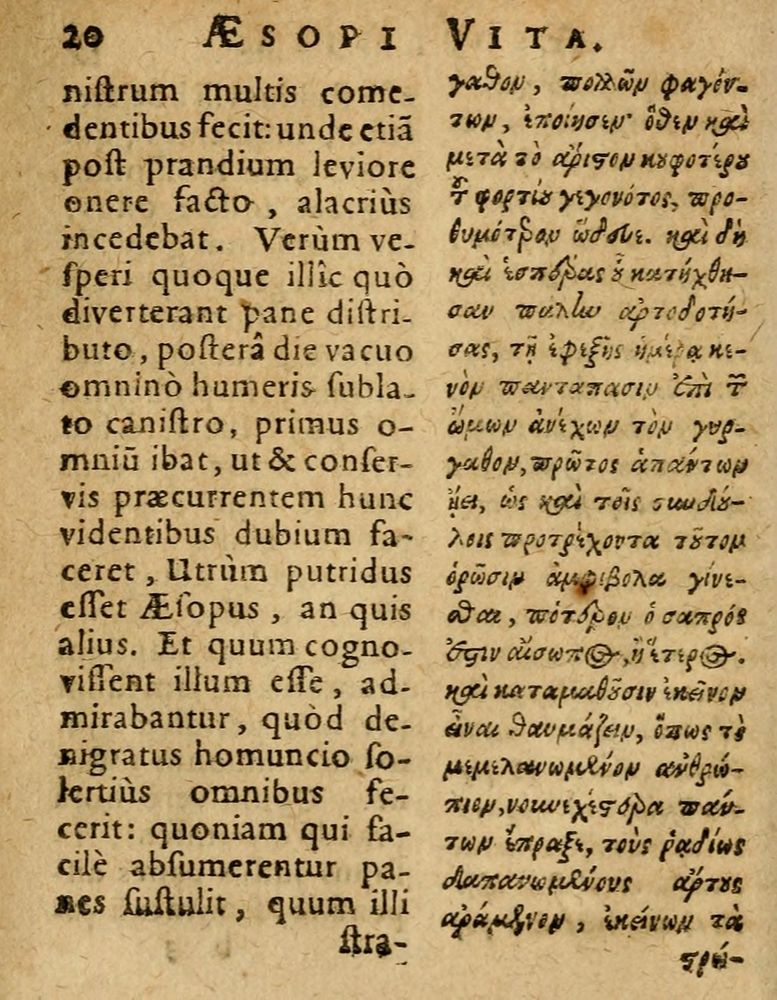 20 ÆSOPI VITA.
niſtrum multis come-
dentibus fecit: unde etiã
poſt prandium leviore
onere facto, alacriùs
incedebat. Verùm ve-
ſperi quoque illîc quò
diverterant pane diſtri-
buto, poſterâ die vacuo
omninò humeris ſubla-
to caniſtro, primus o-
mniũ ibat, ut & conſer-
vis præcurrentem hunc
videntibus dubium fa-
ceret, Utrùm putridus
eſſet Æſopus, an quis
alius. Et quum cogno-
viſſent illum eſſe, ad-
mirabantur, quòd de-
nigratus homuncio ſo-
lertiùs omnibus fe-
cerit: quoniam qui fa-
cilè abſumerentur pa-
nes ſuſtulit, quum illi
ſtra-
γαθον, πολλῶν φαγόν-
των, ἐποίησεν· ὅθεν καὶ
μετὰ τὸ ἄριστον κουφοτέρου
τοῦ φορτίου γεγονότος, προ-
θυμότερον ὥδευε. καὶ δὴ
καὶ ἑσπέρας οὗ κατήχθη-
σαν πάλιν ἀρτοδοτή-
σας, τῇ ἐφεξῆς ἡμέρᾳ κε-
νὸν παντάπασιν ἐπὶ τῶν
ὤμων ἀνέχων τὸν γυρ-
γαθον, πρῶτος ἁπάντων
ᾔει, ὡς καὶ τοῖς συνδού-
λοις προτρέχοντα τοῦτον
ὁρῶσιν ἀμφίβολα γίνε-
σθαι, πότερον ὁ σαπρός
ἐστιν αἴσωπος, ἢ ἕτερος.
καὶ καταμαθοῦσιν ἐκεῖνον
εἶναι θαυμάζειν, ὅπως τὸ
μεμελανωμένον ἀνθρώ-
πιον, νουνεχέστερα πάν-
των ἔπραξε, τοὺς ῥᾳδίως
δαπανωμένους ἄρτους
ἀράμενον, ἐκείνων τὰ
στρώ-